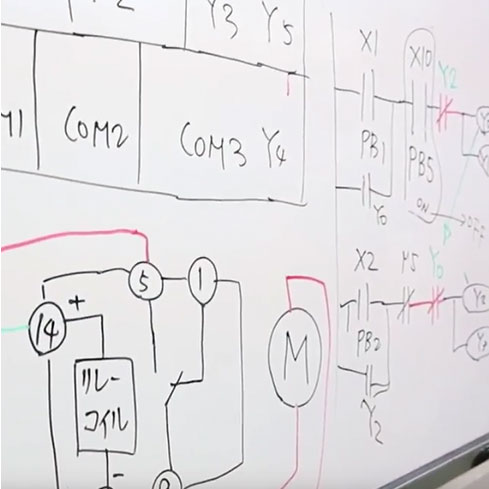 Y3 Y5
COM2
COM3 Y4
X1
X10
Y2
PB1
PB5
Y0
ON
OFF
X2
M5
Y0
PB2
Y2
5
1
14
+
リレー
コイル
-
M